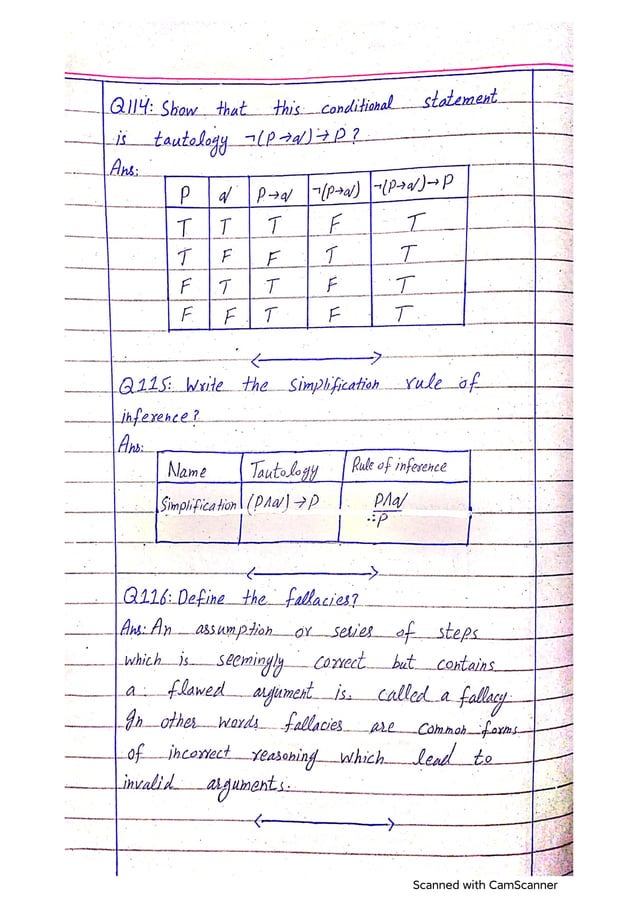 Q114: Show that this conditional statement
is tautology ¬(P→q)→P?
Ans:
P q P→q ¬(P→q) ¬(P→q)→P
T T T F T
T F F T T
F T T F T
F F T F T
Q115: Write the Simplification rule of
inference?
Ans:
Name Tautology Rule of inference
Simplification (P∧q)→P P∧q
∴P
Q116: Define the fallacies?
Ans: An assumption or series of steps
which is seemingly correct but contains
a flawed argument is called a fallacy.
In other words fallacies are common forms
of incorrect reasoning which lead to
invalid arguments.
Scanned with CamScanner